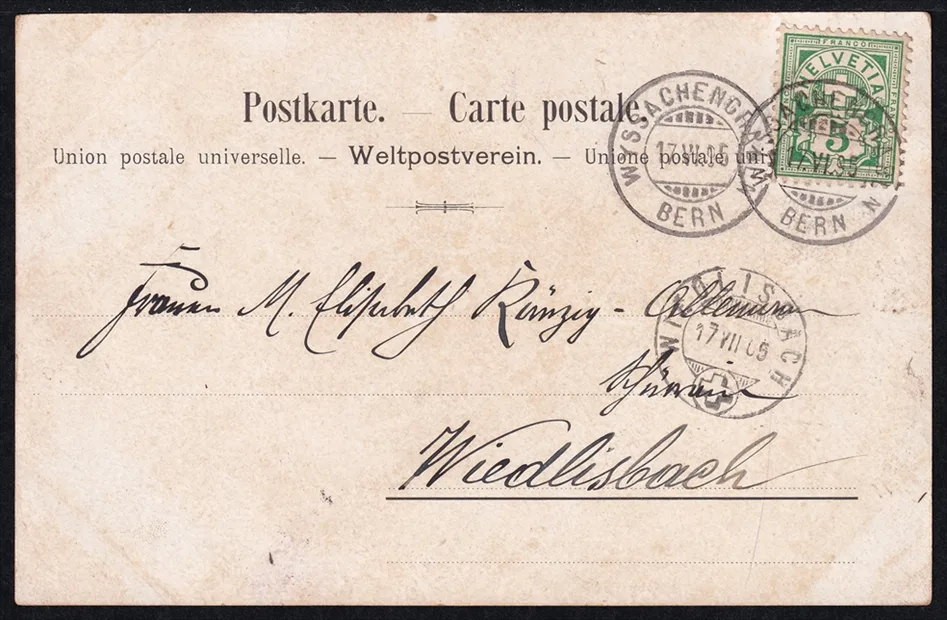 Postkarte. — Carte postale.
Union postale universelle. — Weltpostverein. — Unione postale uni
FRANCO
HELVETIA
5
WYSSACHENGRABEN
17.VII.05
BERN
17.VII.05
BERN
Frauen M. Elisabeth Künzig - Allemann
WIEDLISBACH
17 VII 05
Wiedlisbach